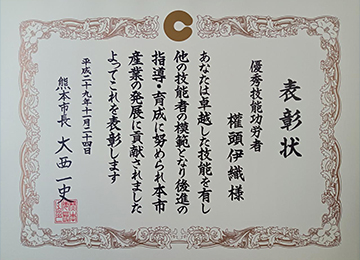 表彰状
優秀技能功労者
權頭伊織様
あなたは卓越した技能を有し
他の技能者の模範となり後進の
指導・育成に努められ本市
産業の発展に貢献されました
よってこれを表彰します
平成二十九年十一月二十四日
熊本市長 大西一史